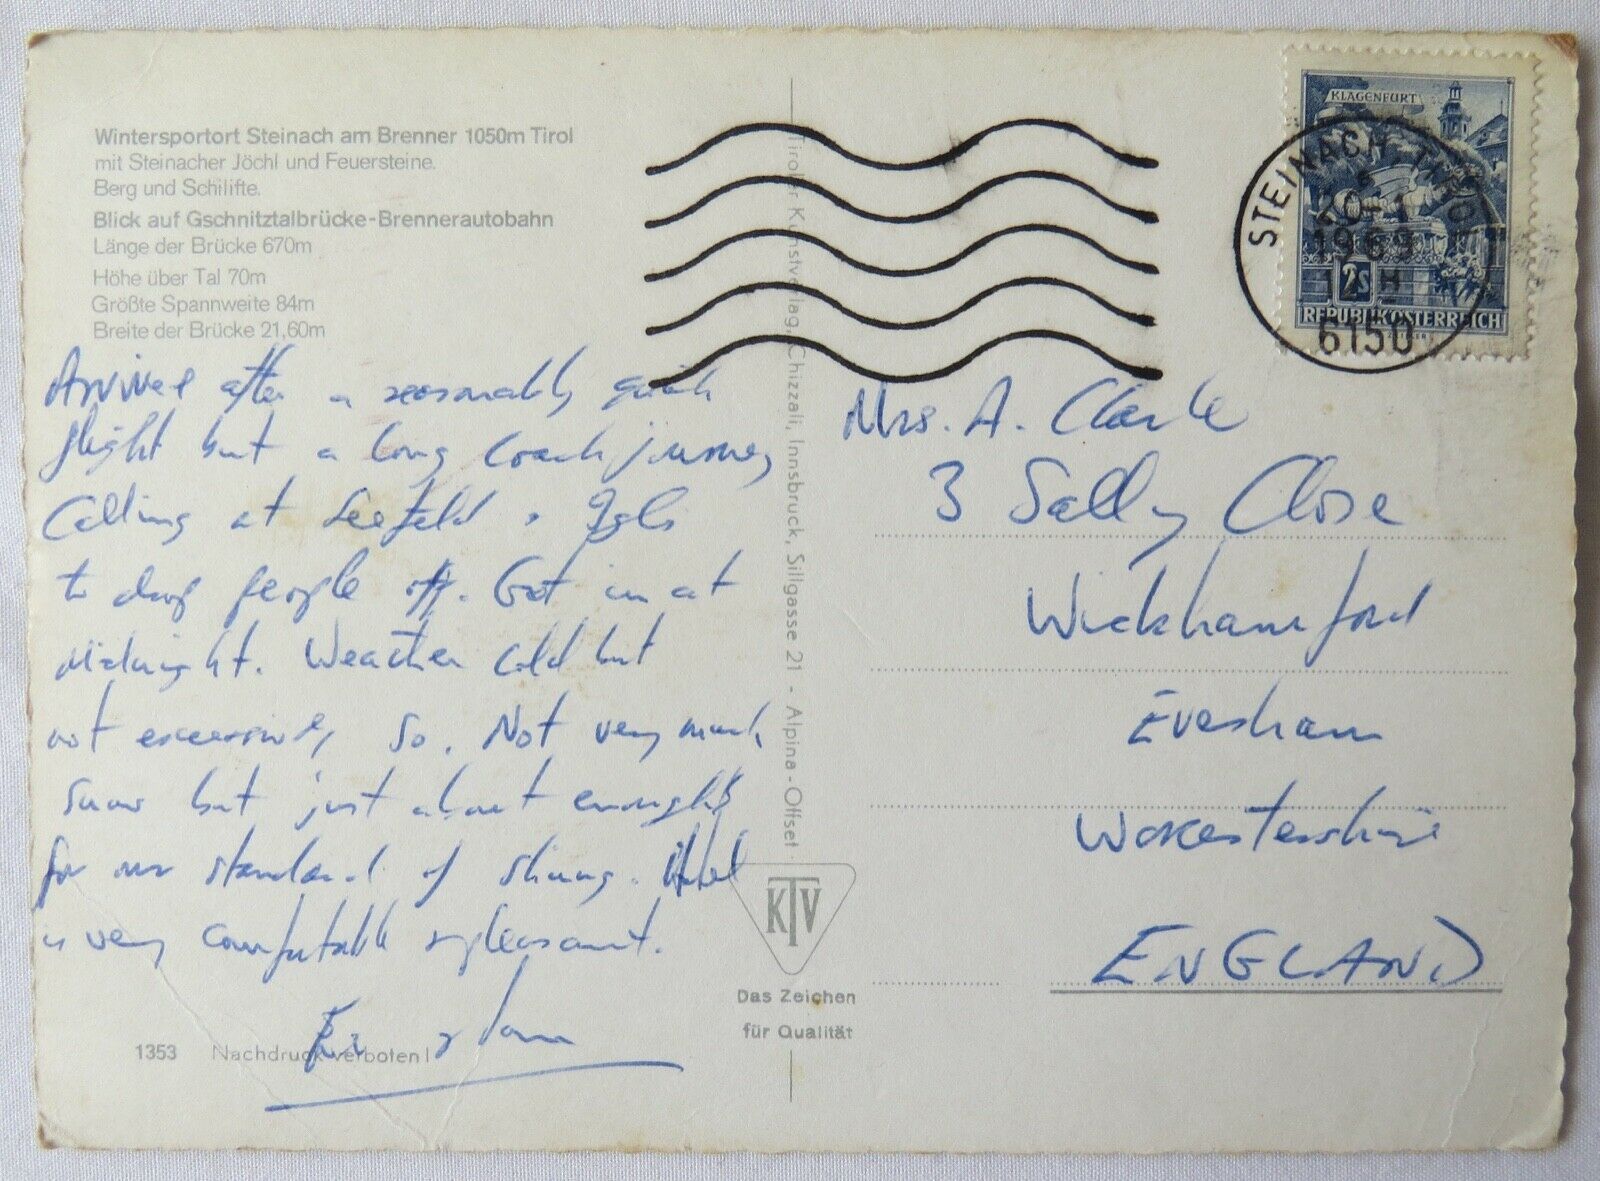 Wintersportort Steinach am Brenner 1050m Tirol
mit Steinacher Jöchl und Feuersteine.
Berg und Schilifte.
Blick auf Gschnitztalbrücke-Brennerautobahn
Länge der Brücke 670m
Höhe über Tal 70m
Größte Spannweite 84m
Breite der Brücke 21,60m
Arrived after a reasonably quick
flight but a long coach journey
Calling at Seefeld & Igls
to drop people off. Got in at
midnight. Weather cold but
not excessively so. Not very much
snow but just about enough
for our standard of skiing. Hotel
is very comfortable & pleasant.
1353 Nachdruck verboten!
Tiroler Kunstverlag, Chizzali, Innsbruck, Sillgasse 21 - Alpina-Offset
KTV
Das Zeichen
für Qualität
KLAGENFURT
2s
REPUBLIK ÖSTERREICH
STEINACH, TIROL
20-1
1969
12H
6150
Mrs. A. Clarke
3 Sally Close
Wickhamford
Evesham
Worcestershire
ENGLAND